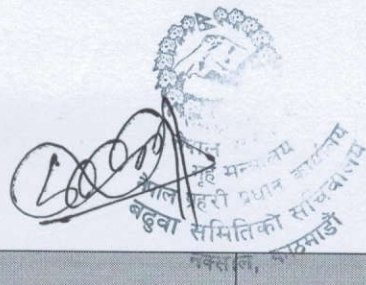 नेपाल
गृह मन्त्रालय
नेपाल प्रहरी प्रधान कार्यालय
बढुवा समितिको सचिवालय
नक्साल, काठमाडौं